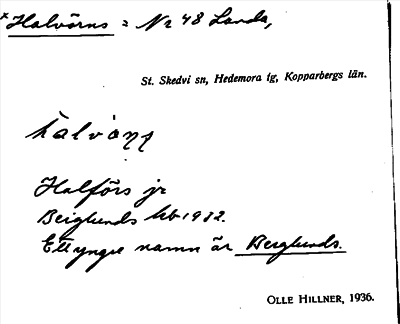 ×Halvörns = Nr 48 Landa,
St. Skedvi sn, Hedemora tg, Kopparbergs län.
Halförs jr
Berglunds hb 1932.
Ett yngre namn är Berglunds.
OLLE HILLNER, 1936.